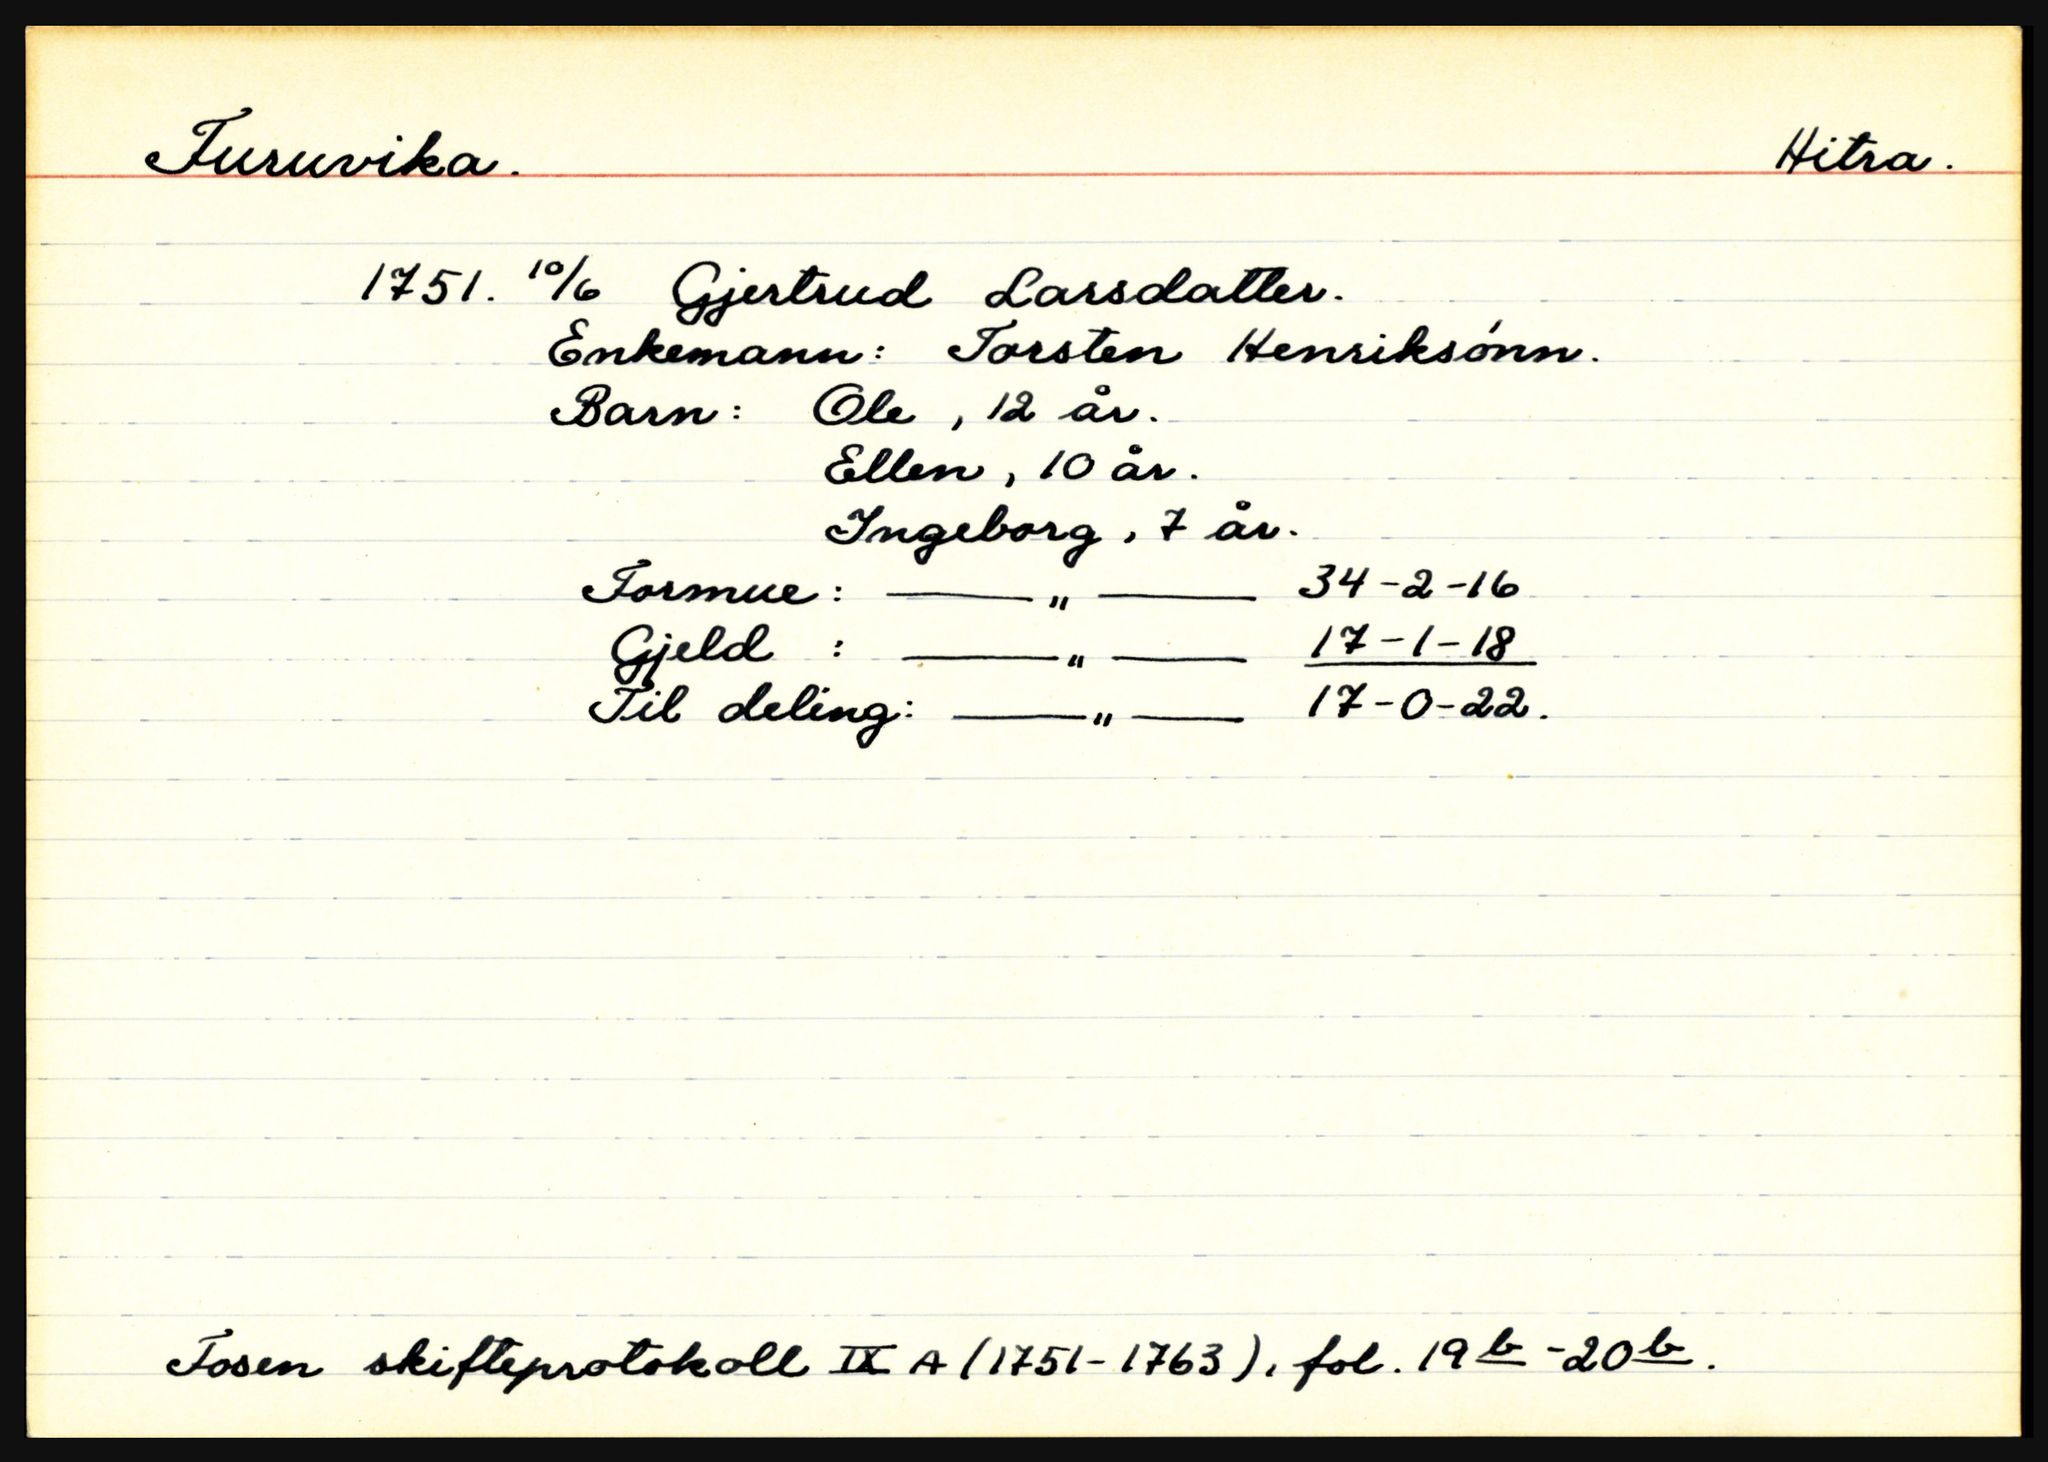 Furuvika. Hitra.
1751. 10/6 Gjertrud Larsdatter.
Enkemann: Torsten Henriksönn.
Barn: Ole, 12 år.
Ellen, 10 år.
Ingeborg, 7 år.
Formue: —— " —— 34-2-16
Gjeld : —— " —— 17-1-18
Til deling: —— " —— 17-0-22.
Fosen skifteprotokoll IX A (1751-1763), fol. 19b-20b.